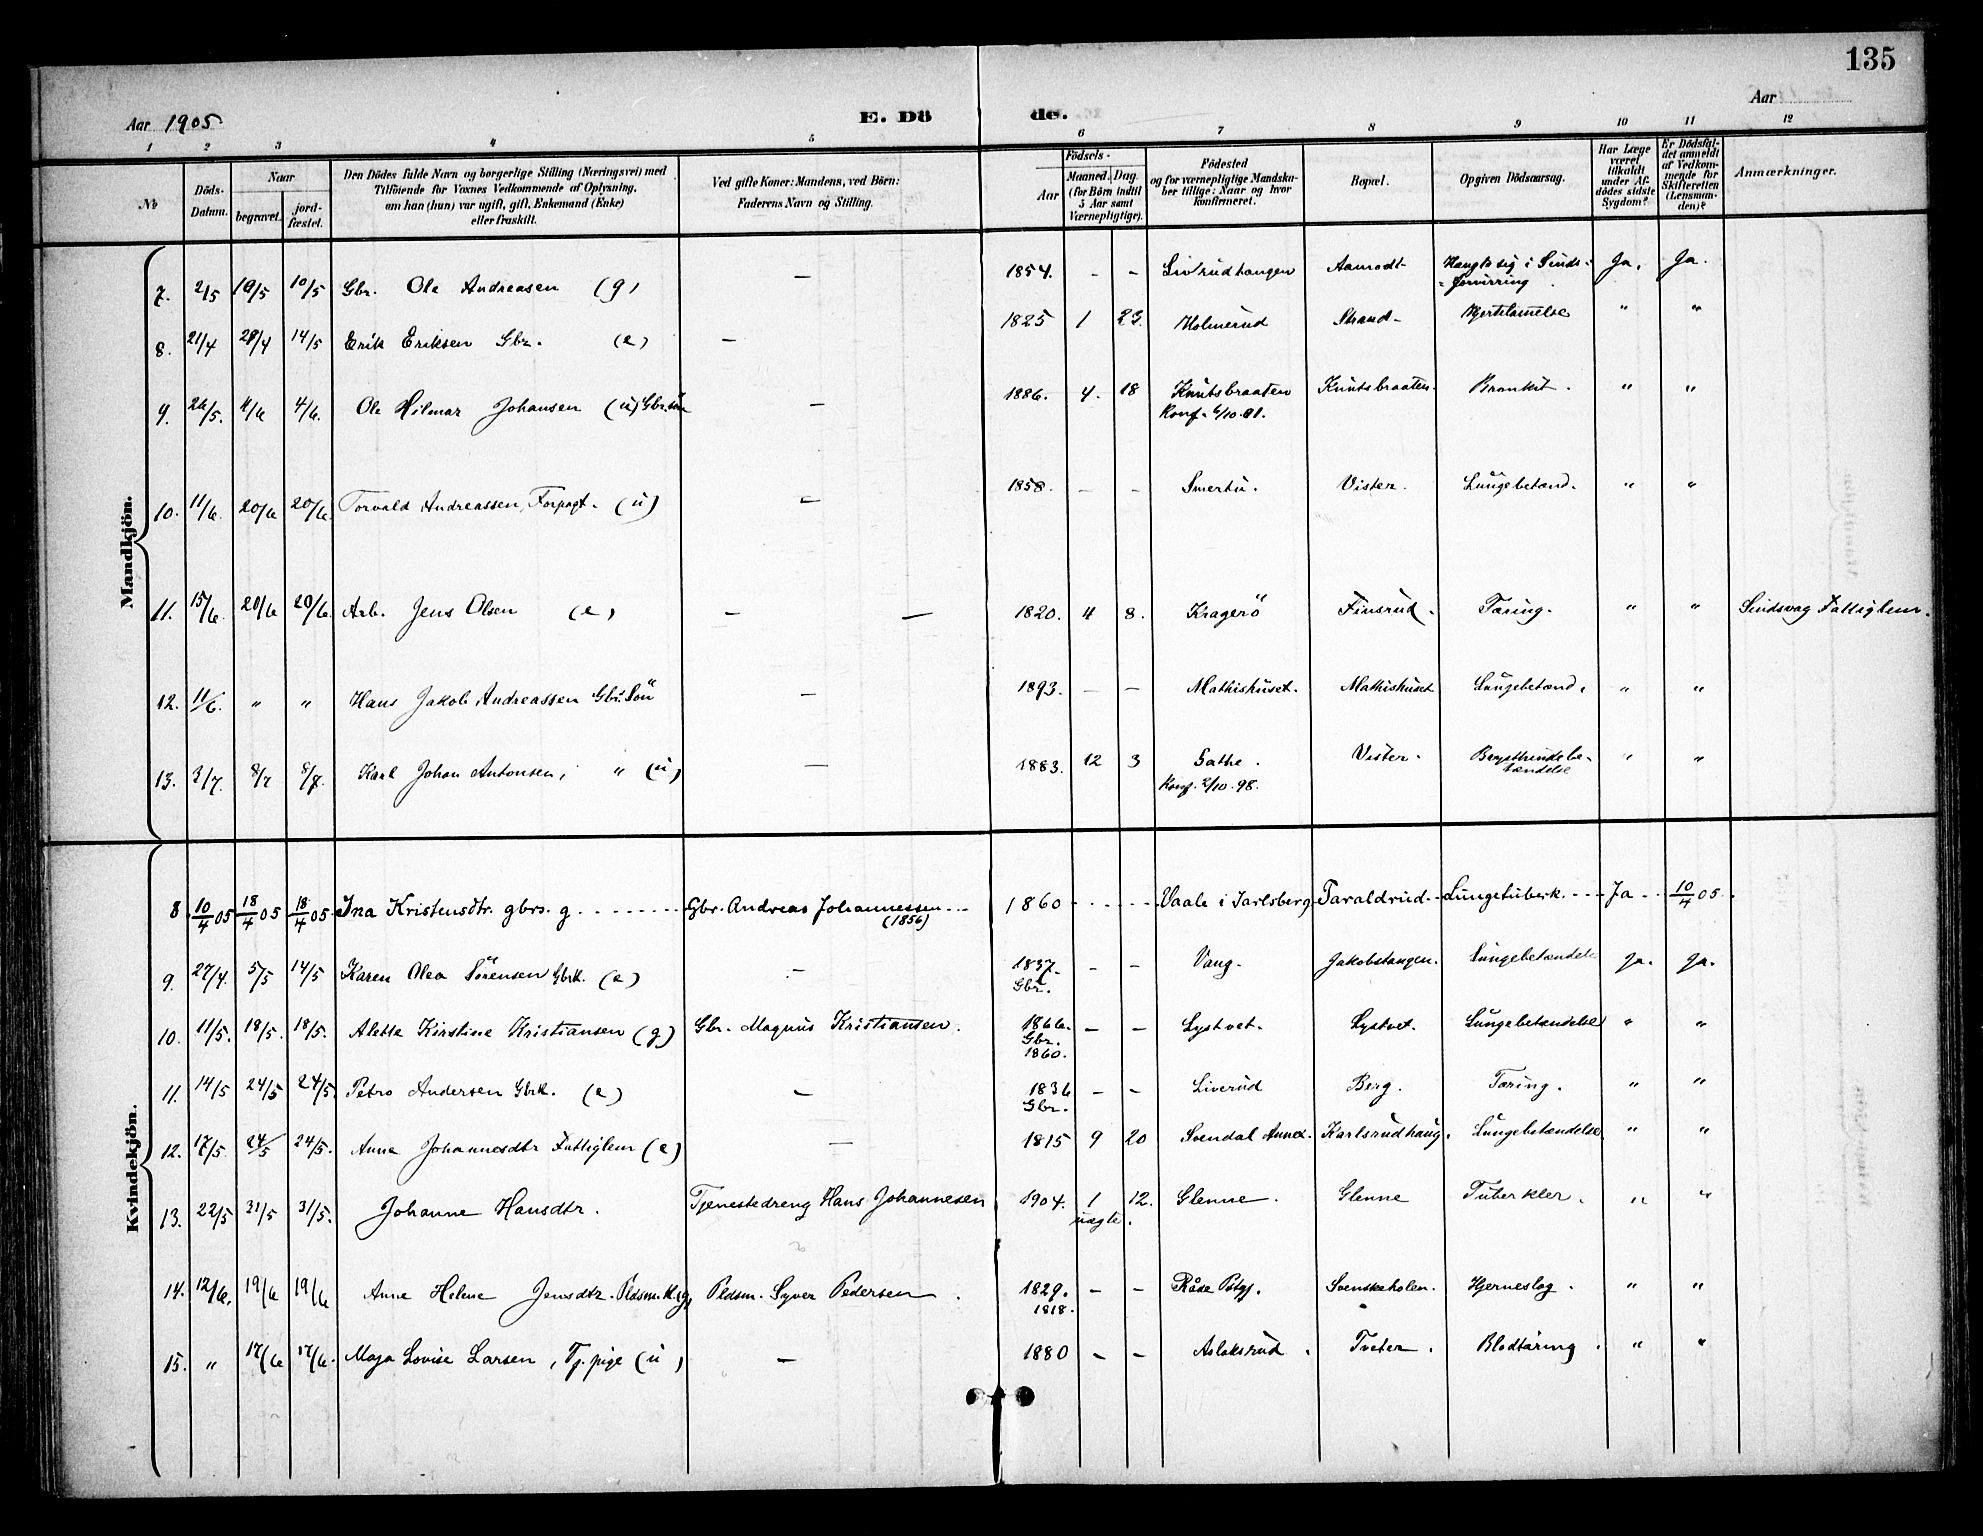 135
Aar 1905
E. Dö
de.
Aar
1 2 3 4 5 6 7 8 9 10 11 12
No
Döds-
Datum.
Naar
begravet.
jord-
fæstet.
Den Dödes fulde Navn og borgerlige Stilling (Næringsvei) med
Tilföiende for Voxnes Vedkommende af Oplysning,
om han (hun) var ugift, gift, Enkemand (Enke)
eller fraskilt.
Ved gifte Koner: Mandens, ved Börn:
Faderens Navn og Stilling.
Födsels-
Aar
Maaned. Dag.
(for Börn indtil
5 Aar samt
Værnepligtige).
Födested
og for værnepligtige Mandska-
ber tillige: Naar og hvor
konfirmeret.
Bopæl.
Opgiven Dödsaarsag.
Har Læge
været
tilkaldt
under Af-
dödes sidste
Sygdom?
Er Dödsfal-
det anmeldt
af Vedkom-
mende for
Skifteretten
(Lensman-
den)?
Anmærkninger.
Mandkjön.
7. 2/5 10/5 10/5 Gbr. Ole Andreasen (g) — 1854. – – Livrudhangen Aamodt Hængt sig i Sinds-
forvirring Ja. Ja.
8. 21/4 28/4 14/5 Erik Eriksen Gbr. (e) — 1825 1 23. Holmerud Strand Hjertelamelse " "
9. 26/5. 4/6 4/6. Ole Hilmar Johansen (u) Gbr.sön — 1886. 4. 18 Knutsbraaten Knutsbraaten. Bronkit. " "
Konf. 6/10.01.
10. 11/6. 20/6 20/6. Torvald Andreassen, Forpagt. (u) — 1858. – – Smertu. Vister. Lungebetænd. " "
11. 15/6. 20/6 20/6. Arb. Jens Olsen (e) — — 1820. 4 8. Kragerö Finsrud. Tæring. " " Sindsvag Fattiglem.
12. 11/6. " " Hans Jakob Andreassen Gbr. Sön — 1893. – – Mathishuset. Mathishuset Lungebetænd. " "
13. 3/7. 8/7 8/7. Karl Johan Antonsen, " (u) — 1883. 12 3 Sathe. Vister. Brysthindebe-
tændelse " "
Konf. 2/10.98.
Kvindekjön.
8 10/4 05 18/4 05 18/4 05 Ina Kristensdtr. gbrs. g. Gbr. Andreas Johannessen
(1856) 1860 Vaale i Jarlsberg Taraldrud Lungetuberk. Ja 10/4 05.
9. 27/4. 5/5 14/5 Karen Olea Sörensen Gbrk. (e) — 1837.
Gbr. – – Vang. Jakobstangen. Lungebetændelse Ja. Ja.
10. 11/5. 18/5. 18/5. Alette Kirstine Kristiansen (g) Gbr. Magnus Kristiansen. 1866.
Gbr.
1860. – – Lystvet. Lystvet. Lungebetændelse " "
11. 14/5 24/5 24/5. Petro Andersen Gbrk. (e) — 1836
Gbr. – – Liverud Berg. Tæring. " "
12. 17/5. 24/5 24/5. Anne Johannesdtr Fattiglem (e) — 1815 9 20 Svendal Annex. Karlsrudhaug. Lungebetændelse. " "
13. 22/5 31/5 31/5. Johanne Hansdtr. Tjenestedreng Hans Johannesen 1904. 1 12. Glenne. Glenne Tuberkler. " "
uægte.
14. 12/6. 19/6 19/6 Anne Helene Jensdtr. Pldsm. K. (g) Pldsm. Syver Pedersen. 1829.
1818. – – Råde Pstgj. Svenskeholen. Hjerneslag. " "
15. " 17/6 17/6. Maja Lovise Larsen, Tj. pige (u) — 1880 – – Aslaksrud. Tveter. Blodtæring. " "